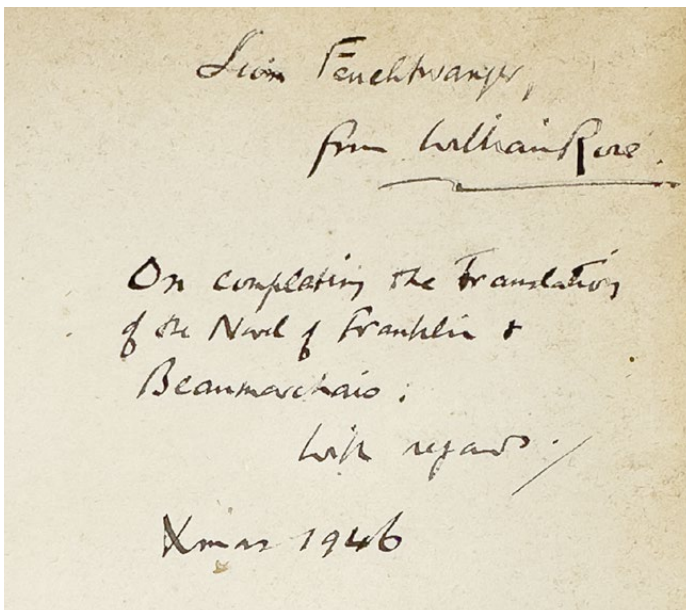 Lion Feuchtwanger,
from William Rose.
On completing the Translation
of the Novel of Franklin &
Beaumarchais.
With regards.
Xmas 1946